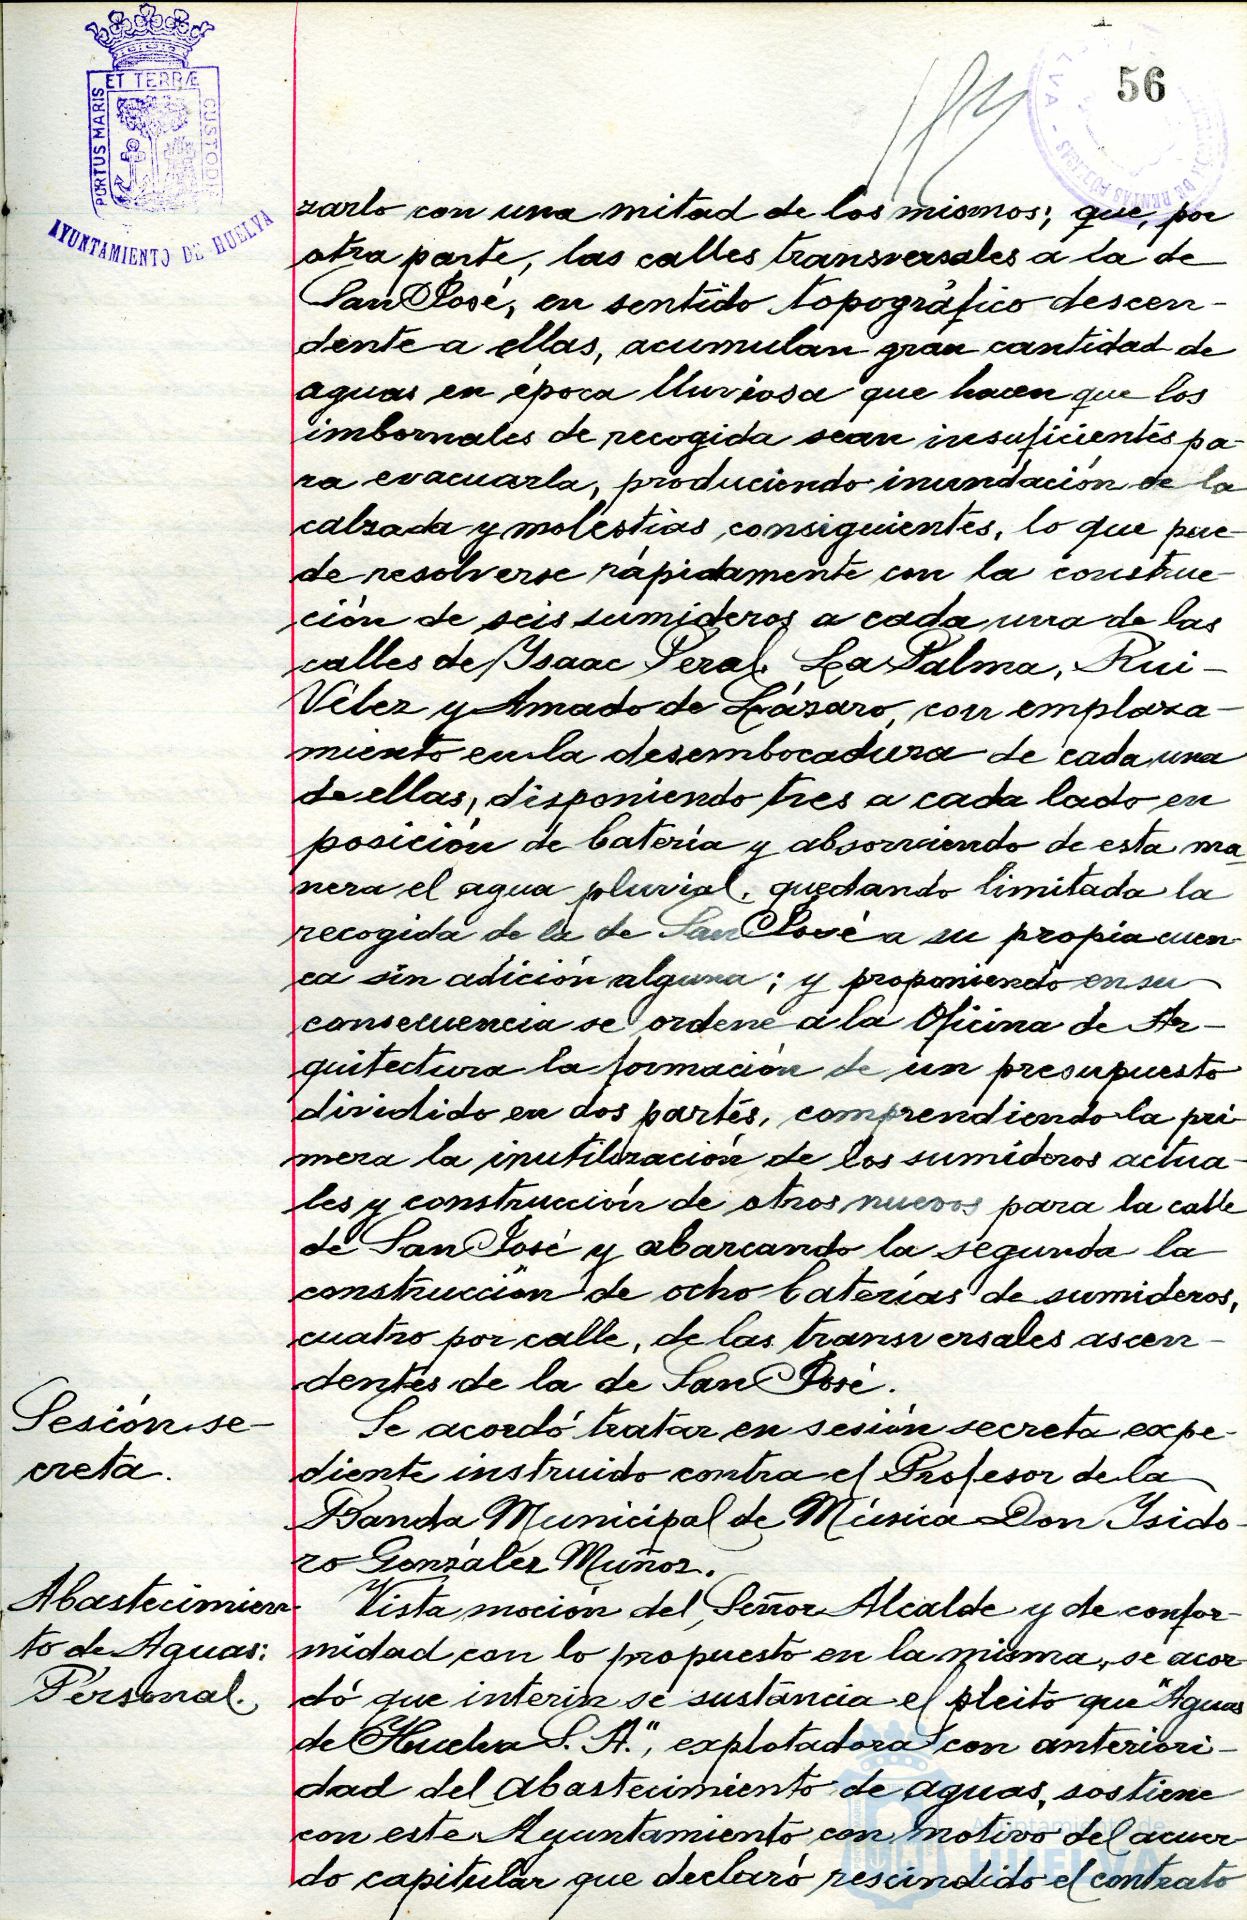 56
ET TERRÆ
PORTUS MARIS
CUSTODIA
AYUNTAMIENTO DE HUELVA
zarlo con una mitad de los mismos; que, por
otra parte, las calles transversales a la de
San José, en sentido topográfico descen-
dente a ellas, acumulan gran cantidad de
aguas en época lluviosa que hacen que los
imbornales de recogida sean insuficientes pa-
ra evacuarla, produciendo inundación de la
calzada y molestias consiguientes, lo que pue-
de resolverse rápidamente con la construc-
ción de seis sumideros a cada una de las
calles de Isaac Peral, La Palma, Rui-
Vélez y Amado de Lázaro, con emplaza-
miento en la desembocadura de cada una
de ellas, disponiendo tres a cada lado en
posición de batería y absorviendo de esta ma
nera el agua pluvial, quedando limitada la
recogida de la de San José a su propia cuen
ca sin adición alguna; y proponiendo en su
consecuencia se ordene a la Oficina de Ar-
quitectura la formación de un presupuesto
dividido en dos partes, comprendiendo la pri
mera la inutilización de los sumideros actua-
les y construcción de otros nuevos para la calle
de San José y abarcando la segunda la
construcción de ocho baterías de sumideros,
cuatro por calle, de las transversales ascen-
dentes de la de San José.
Sesión se-
creta.
Se acordó tratar en sesión secreta expe-
diente instruido contra el Profesor de la
Banda Municipal de Música Don Ysido-
ro González Muñoz.
Abastecimien-
to de Aguas:
Personal.
Vista moción del Señor Alcalde y de confor-
midad con lo propuesto en la misma, se acor
dó que interin se sustancia el pleito que "Aguas
de Huelva S. A.", explotadora con anteriori-
dad del abastecimiento de aguas, sostiene
con este Ayuntamiento con motivo del acuer
do capitular que declaró rescindido el contrato
Ayuntamiento de
HUELVA